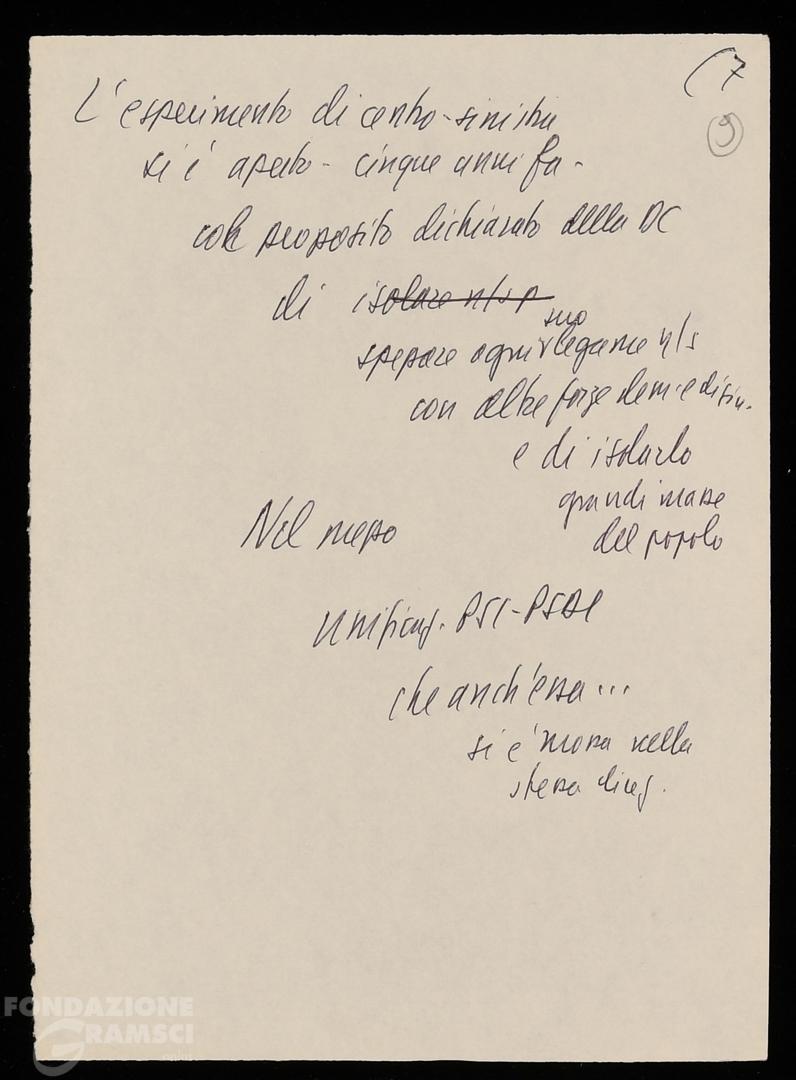 (7
9
L'esperimento di centro-sinistra
si è aperto - cinque anni fa -
col proposito dichiarato della DC
di isolare n/s p
suo
spezzare ogni legame n/s
con altre forze dem. e di sin.
e di isolarlo
grandi masse
del popolo
Nel mezzo
unificaz. PSI-PSDI
che anch'essa...
si è mossa nella
stessa direz.
FONDAZIONE
GRAMSCI
onlus